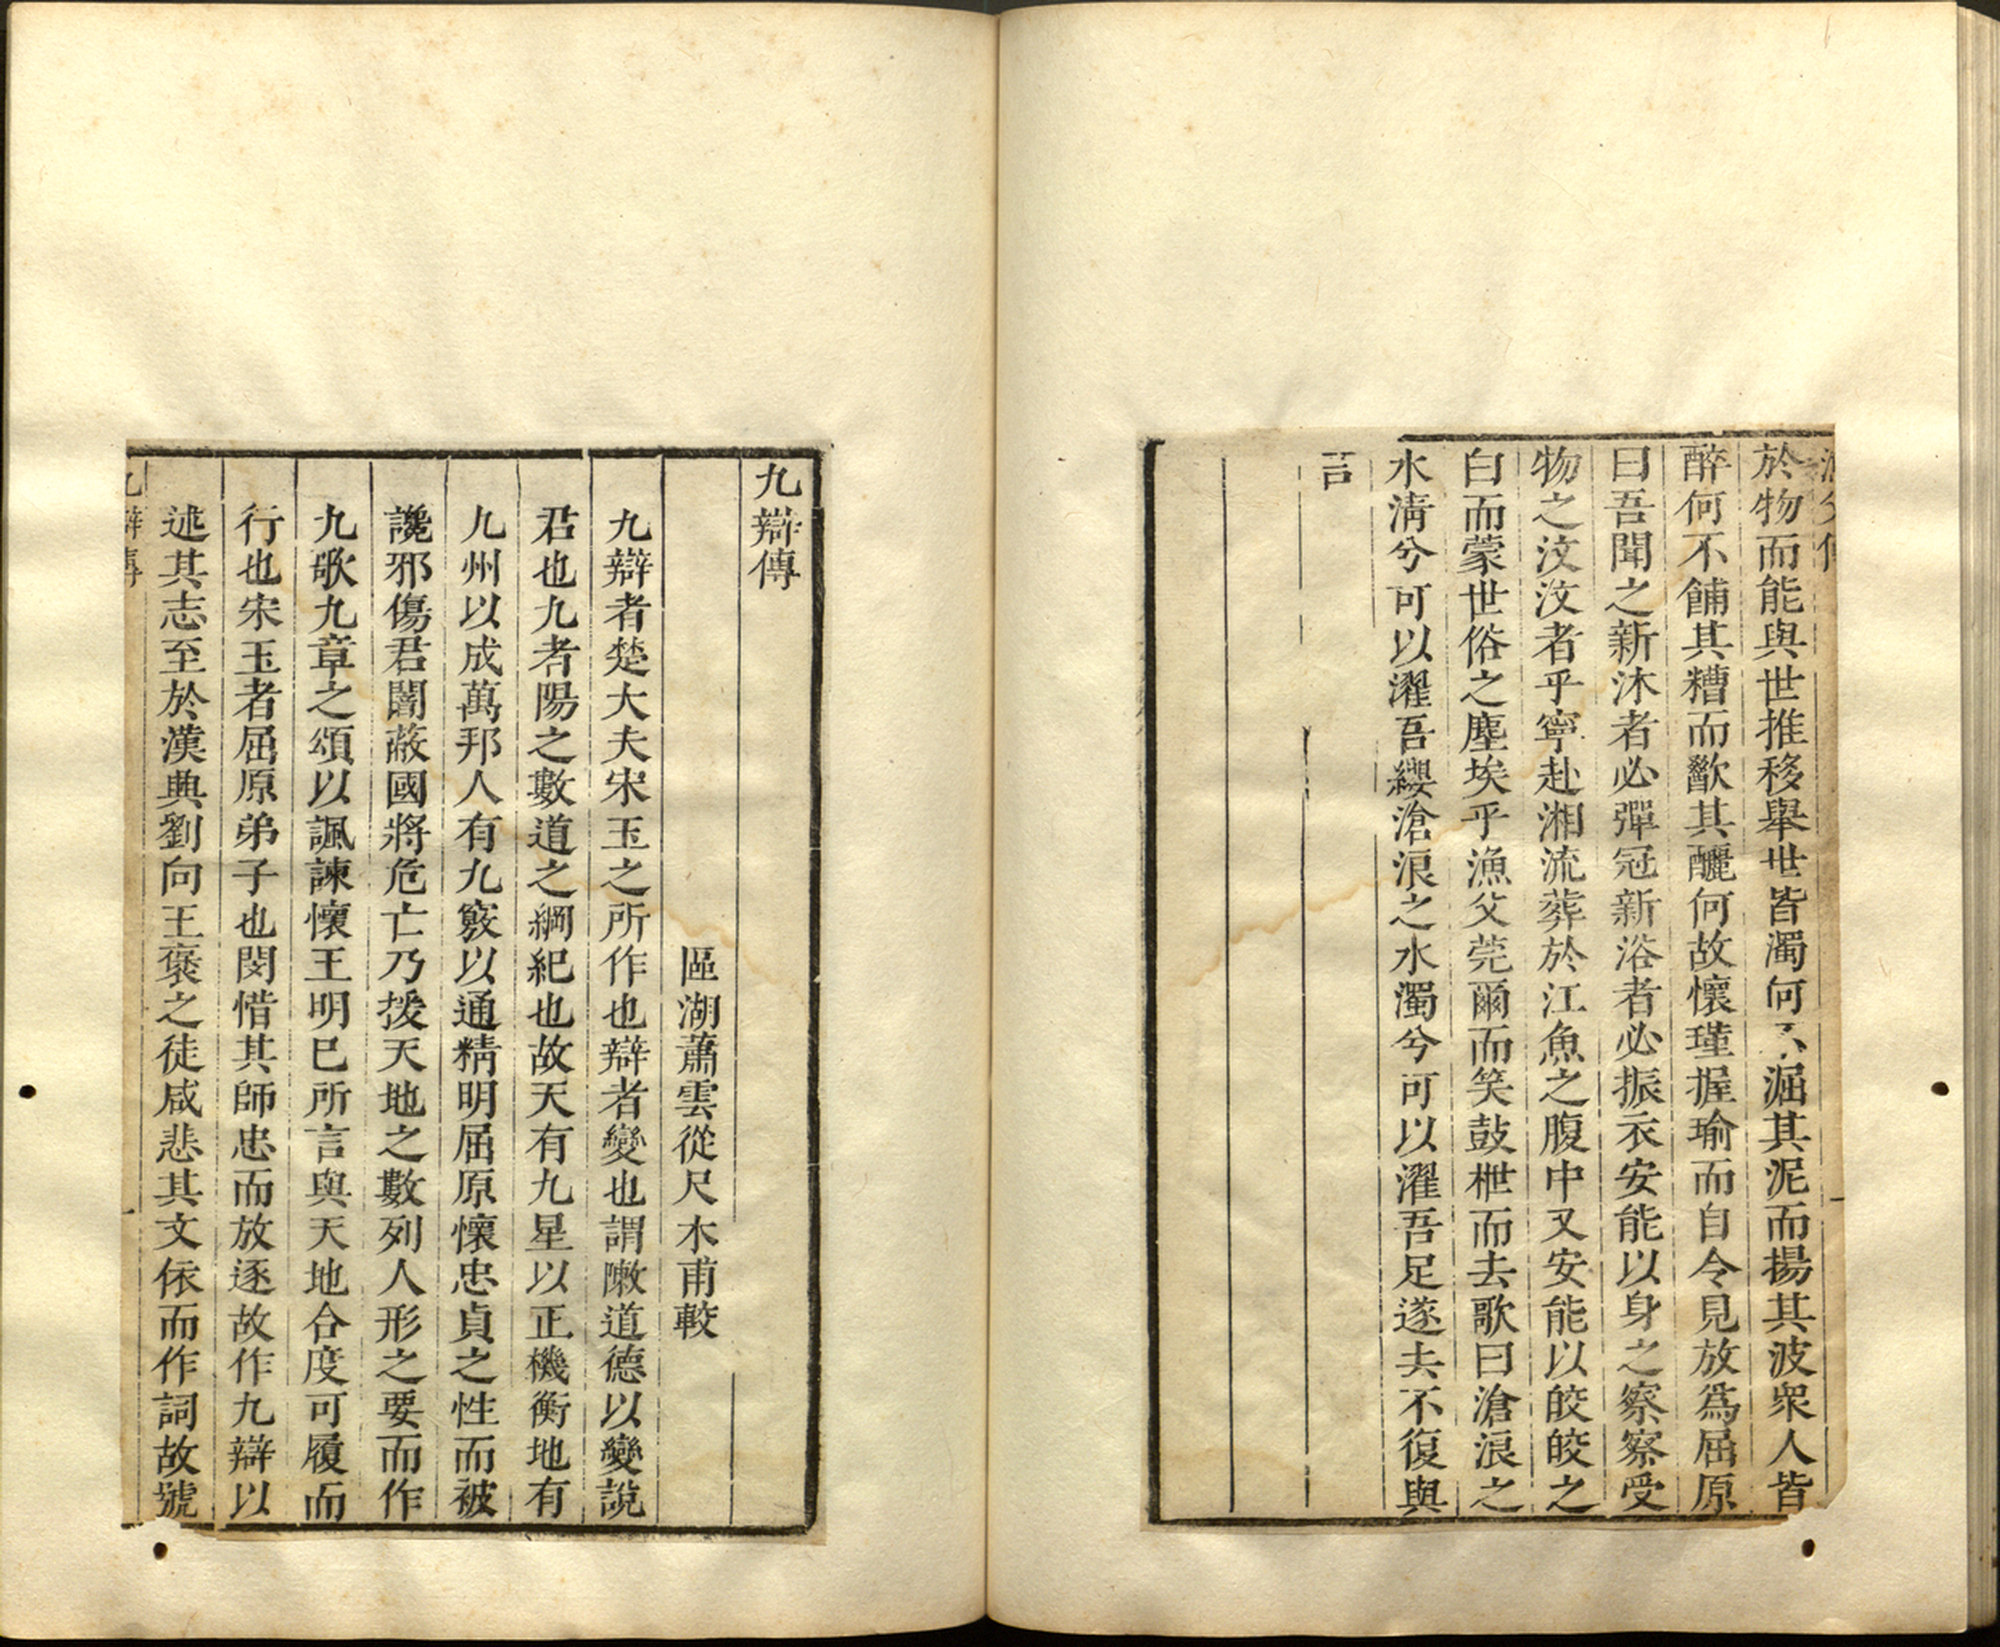 於物而能與世推移舉世皆濁何不淈其泥而揚其波衆人皆
醉何不餔其糟而歠其釃何故懷瑾握瑜而自令見放爲屈原
曰吾聞之新沐者必彈冠新浴者必振衣安能以身之察察受
物之汶汶者乎寧赴湘流葬於江魚之腹中又安能以皎皎之
白而蒙世俗之塵埃乎漁父莞爾而笑鼓枻而去歌曰滄浪之
水淸兮可以濯吾纓滄浪之水濁兮可以濯吾足遂去不復與
言
九辯傳
區湖蕭雲從尺木甫較
九辯者楚大夫宋玉之所作也辯者變也謂敶道德以變說
君也九者陽之數道之綱紀也故天有九星以正機衡地有
九州以成萬邦人有九竅以通精明屈原懷忠貞之性而被
讒邪傷君闇蔽國將危亡乃援天地之數列人形之要而作
九歌九章之頌以諷諫懷王明已所言與天地合度可履而
行也宋玉者屈原弟子也閔惜其師忠而放逐故作九辯以
述其志至於漢典劉向王褒之徒咸悲其文依而作詞故號